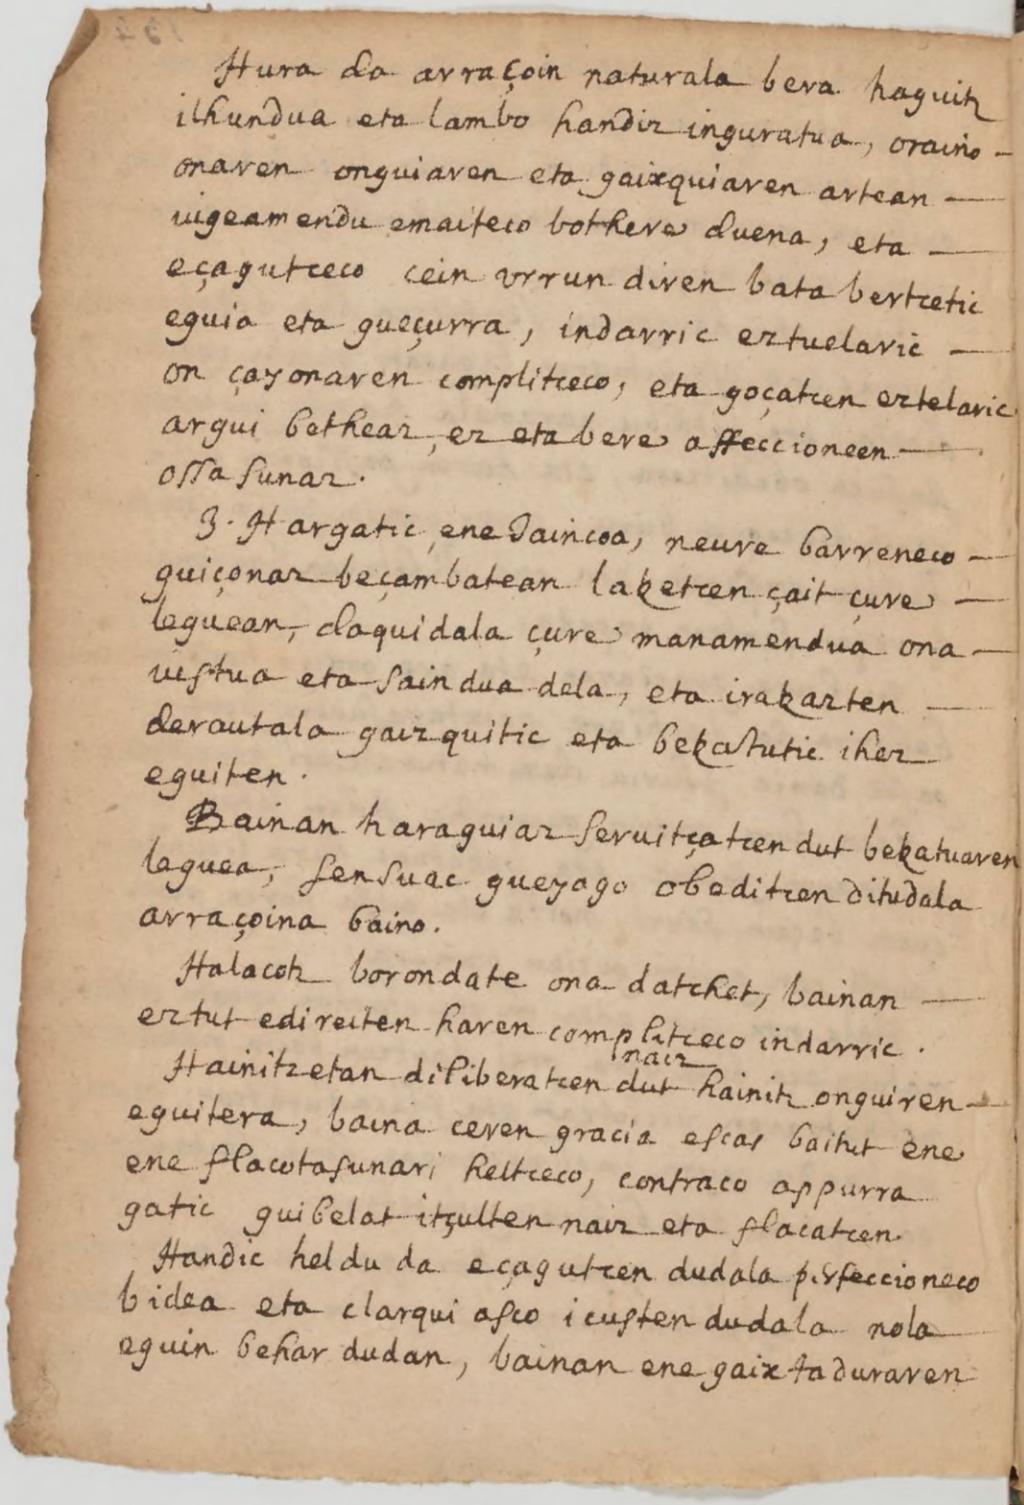 Hura da arraçoin naturala bera haguitz
ilhundua eta lambo handiz inguratua, oraino
onaren onguiaren eta gaixquiaren artean
uigeamendu emaiteco bothere duena, eta
eçagutceco cein vrrun diren bata bertcetic
eguia eta gueçurra, indarric eztuelaric
on çayonaren complitceco, eta goçatcen eztelaric
argui betheaz, ez eta bere affeccioneen
ossasunaz.
3. Hargatic ene Jaincoa, neure barreneco
guiçonaz beçambatean laketcen çait çure
leguean, daquidala çure manamendua ona
iustua eta saindua dela, eta irakazten
derautala gaizquitic eta bekatutic ihez
eguiten.
Bainan haraguiaz seruitçatcen dut bekatuaren
leguea, sensuac gueyago obeditcen ditudala
arraçoina baino.
Halacotz borondate ona datchet, bainan
eztut edireiten haren complitceco indarric.
naiz
Hainitzetan diliberatcen dut hainitz onguiren
eguitera, baina ceren gracia escas baitut ene
ene flacotasunari heltceco, contraco appurra
gatic guibelat itçulten naiz eta flacatcen.
Handic heldu da eçagutcen dudala perfeccioneco
bidea eta clarqui asco icusten dudala nola
eguin behar dudan, bainan ene gaixtaduraren